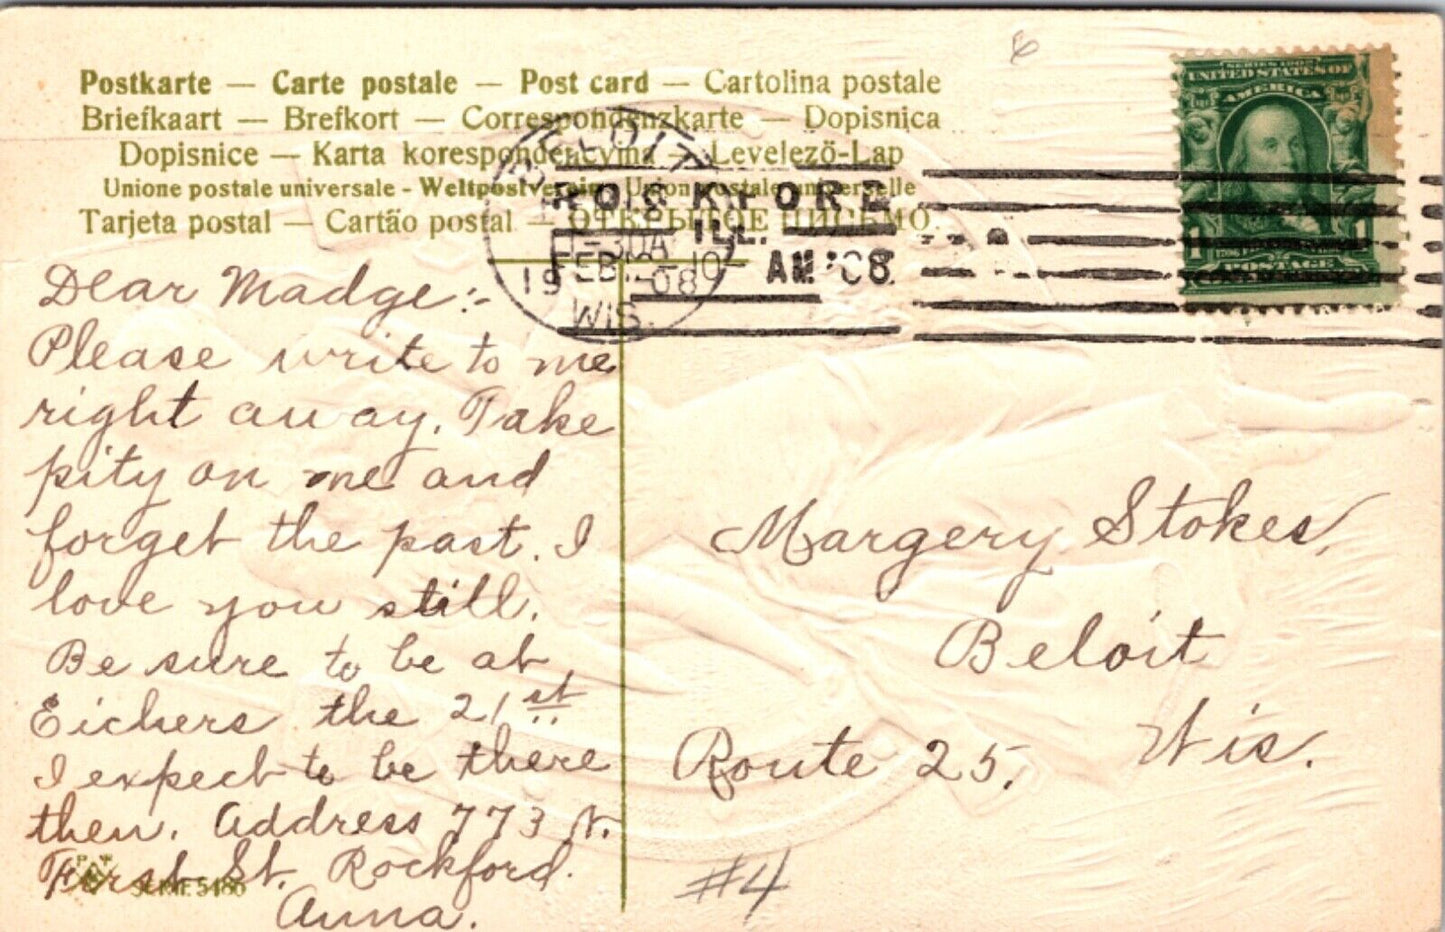 6
Postkarte — Carte postale — Post card — Cartolina postale
Briefkaart — Brefkort — Correspondenzkarte — Dopisnica
Dopisnice — Karta korespondencyjna — Levelező-Lap
Unione postale universale - Weltpostverein - Union postale universelle
Tarjeta postal — Cartão postal — ОТКРЫТОЕ ПИСЬМО.
SERIES 1902
UNITED STATES OF
AMERICA
1 1
POSTAGE
ROCKFORD
ILL.
FEB 10-
AM '08
BELOIT
1908
WIS.
Dear Madge:-
Please write to me
right away. Take
pity on me and
forget the past. I
love you still.
Be sure to be at
Eichers the 21st
I expect to be there
then. Address 773 N.
First St. Rockford.
Anna.
SERIE 5486
Margery Stokes,
Beloit
Wis.
Route 25.
#4